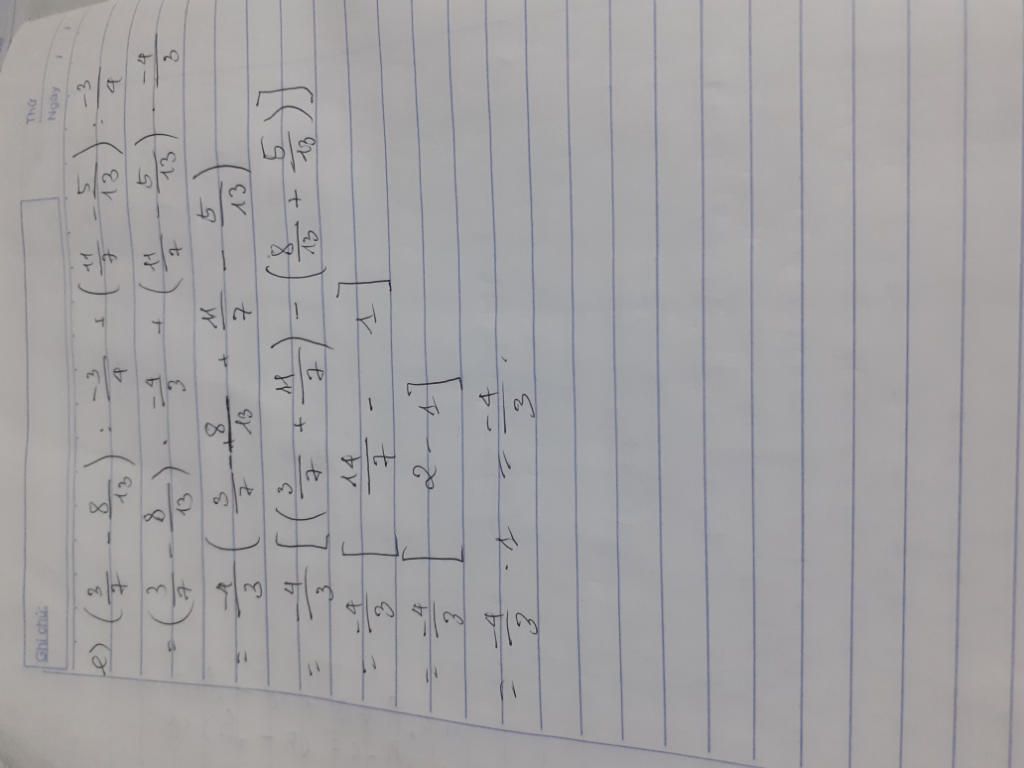 Ghi chú:
Thứ
Ngày
e) (3/7 - 8/13) : -3/4 + (11/7 - 5/13) : -3/4
= (3/7 - 8/13) . -4/3 + (11/7 - 5/13) . -4/3
= -4/3 (3/7 - 8/13 + 11/7 - 5/13)
= -4/3 [(3/7 + 11/7) - (8/13 + 5/13)]
= -4/3 [14/7 - 1]
= -4/3 [2 - 1]
= -4/3 . 1 = -4/3 .